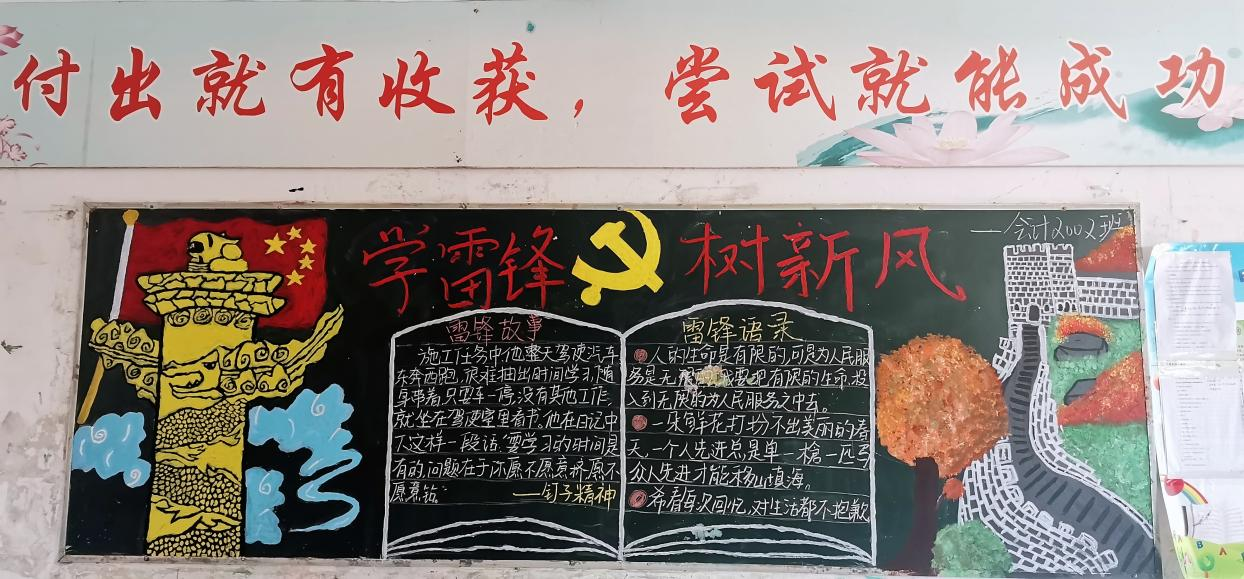 付出就有收获，尝试就能成功
学雷锋 树新风
—会计2002班
雷锋故事
施工任务中他整天驾使汽车
东奔西跑，很难抽出时间学习，随
身带着，只要车一停，没有其他工作，
就坐在驾使室里看书。他在日记中
下这样一段话：要学习的时间是
有的，问题在于你愿不愿意挤，愿不
愿意钻。
—钉子精神
雷锋语录
人的生命是有限的，可是为人民服
务是无限的，我要把有限的生命，投
入到无限的为人民服务之中去。
一朵鲜花打扮不出美丽的春
天，一个人先进总是单一枪一匹马
众人先进才能移山填海。
希看每次回忆，对生活都不抱歉